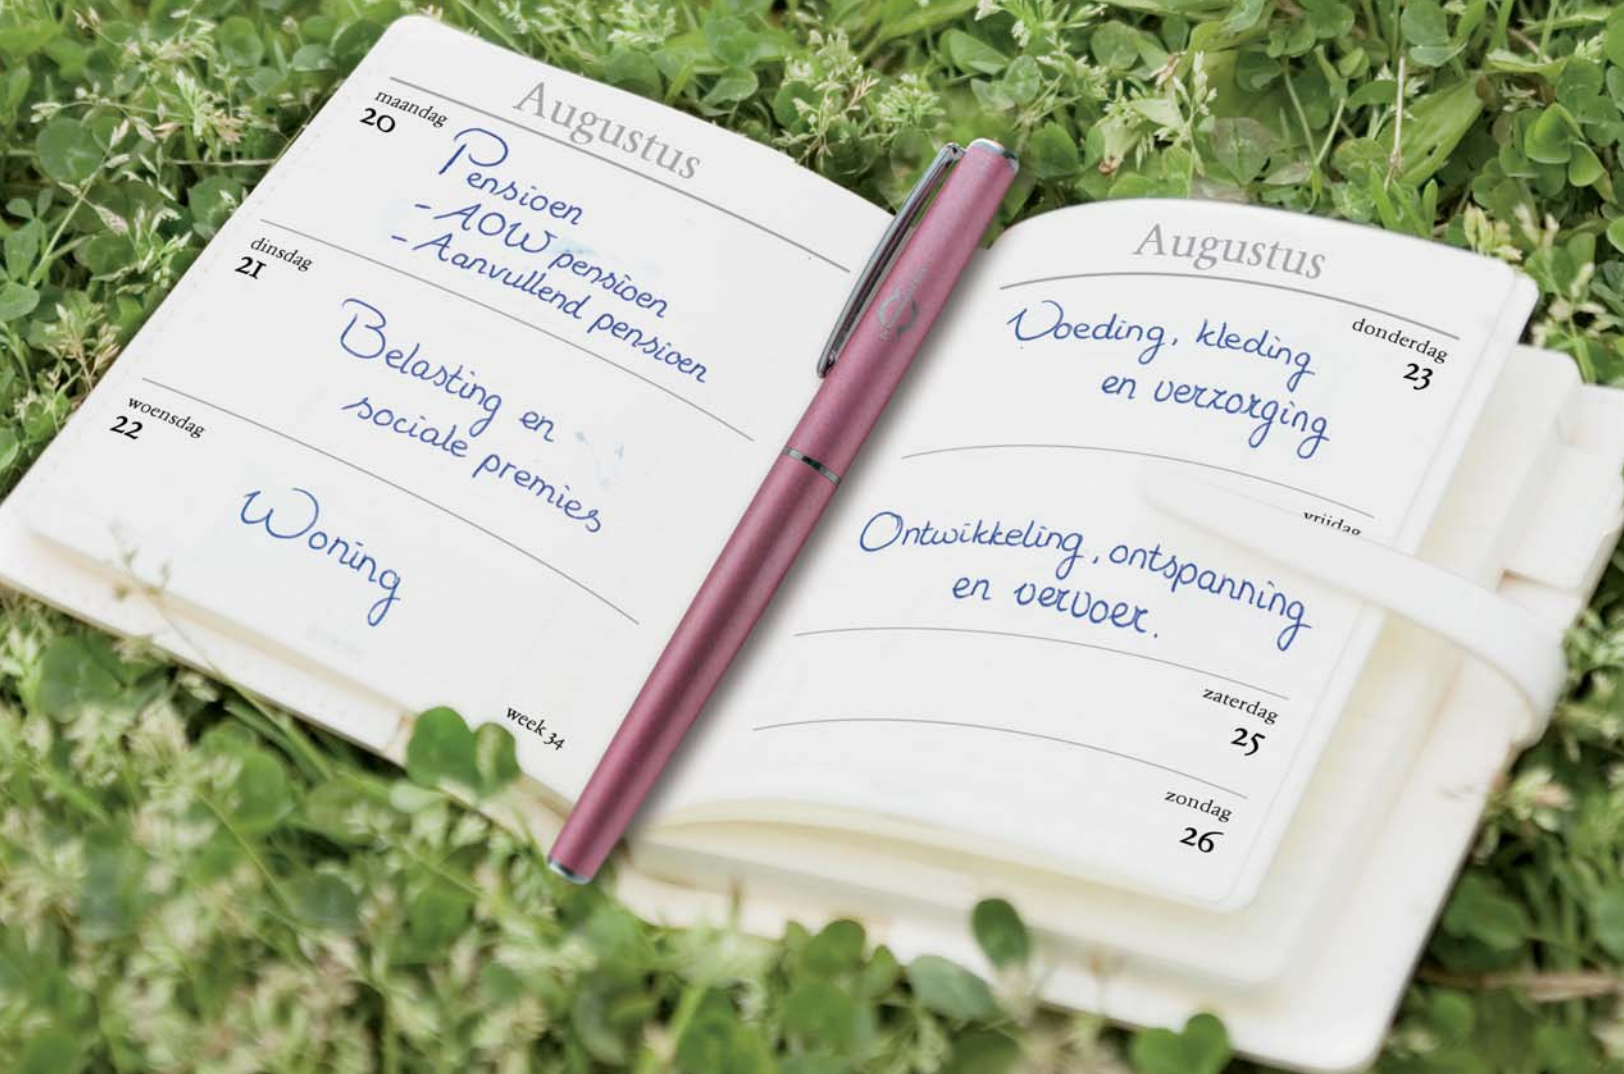 Augustus
maandag
20
Pensioen
- AOW pensioen
- Aanvullend pensioen
dinsdag
21
Belasting en
sociale premies
woensdag
22
Woning
week 34
Augustus
donderdag
23
Voeding, kleding
en verzorging
vrijdag
Ontwikkeling, ontspanning
en vervoer.
zaterdag
25
zondag
26